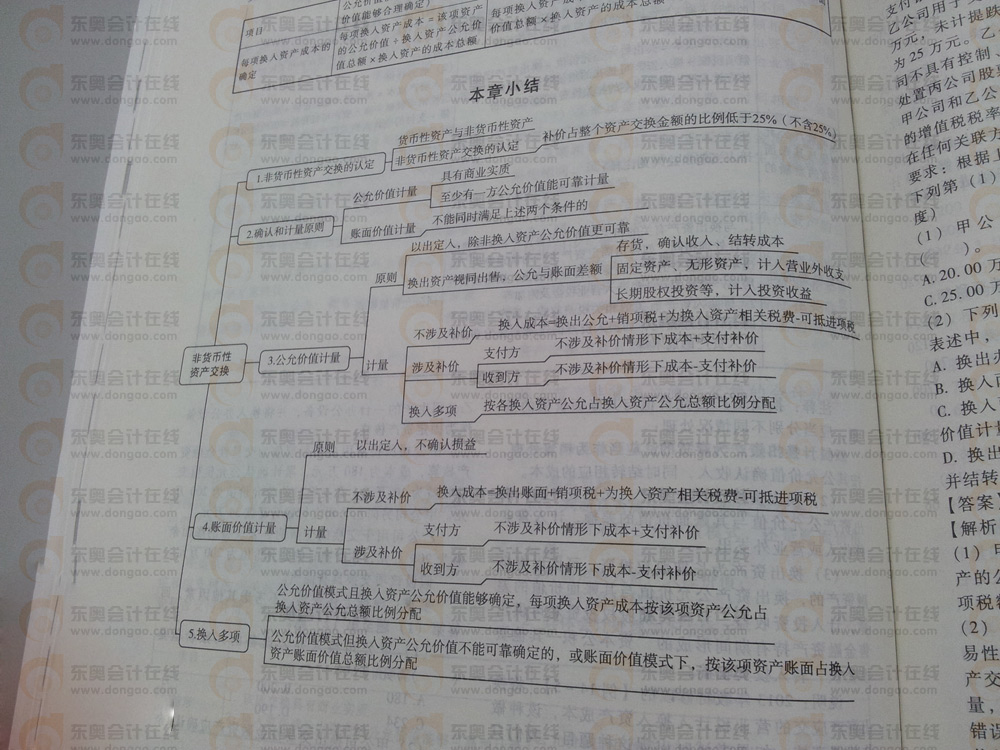 项目
价值能够合理确定）
每项换入资产成本的
确定
每项换入资产成本＝该项资产
的公允价值÷换入资产公允价
值总额×换入资产的成本总额
每项换入资产成
价值总额×换入资产的成本总额
本章小结
1.非货币性资产交换的认定
货币性资产与非货币性资产
非货币性资产交换的认定
补价占整个资产交换金额的比例低于25%（不含25%）
2.确认和计量原则
公允价值计量
具有商业实质
至少有一方公允价值能可靠计量
账面价值计量
不能同时满足上述两个条件的
非货币性
资产交换
3.公允价值计量
原则
以出定入，除非换入资产公允价值更可靠
换出资产视同出售，公允与账面差额
存货，确认收入、结转成本
固定资产、无形资产，计入营业外收支
长期股权投资等，计入投资收益
计量
不涉及补价
换入成本=换出公允+销项税+为换入资产相关税费-可抵进项税
涉及补价
支付方
不涉及补价情形下成本+支付补价
收到方
不涉及补价情形下成本-支付补价
换入多项
按各换入资产公允占换入资产公允总额比例分配
4.账面价值计量
原则
以出定入，不确认损益
计量
不涉及补价
换入成本=换出账面+销项税+为换入资产相关税费-可抵进项税
涉及补价
支付方
不涉及补价情形下成本+支付补价
收到方
不涉及补价情形下成本-支付补价
5.换入多项
公允价值模式且换入资产公允价值能够确定，每项换入资产成本按该项资产公允占
换入资产公允总额比例分配
公允价值模式但换入资产公允价值不能可靠确定的，或账面价值模式下，按该项资产账面占换入
资产账面价值总额比例分配
乙公司用于交
万元，未计提跌
为 25 万元。乙
司不具有控制、
处置丙公司股
甲公司和乙公
的增值税税率
在任何关联方
要求：根据上
下列第（1）
度）
（1）甲公
（ ）。
A. 20.00 万
C. 25.00 万
（2）下列
表述中，
A. 换出
B. 换入
C. 换入
价值计
D. 换出
并结转
【答案
【解析
（1）甲
产的公
项税
（2）
易性
产交
量，
错误
东奥会计在线
www.dongao.com